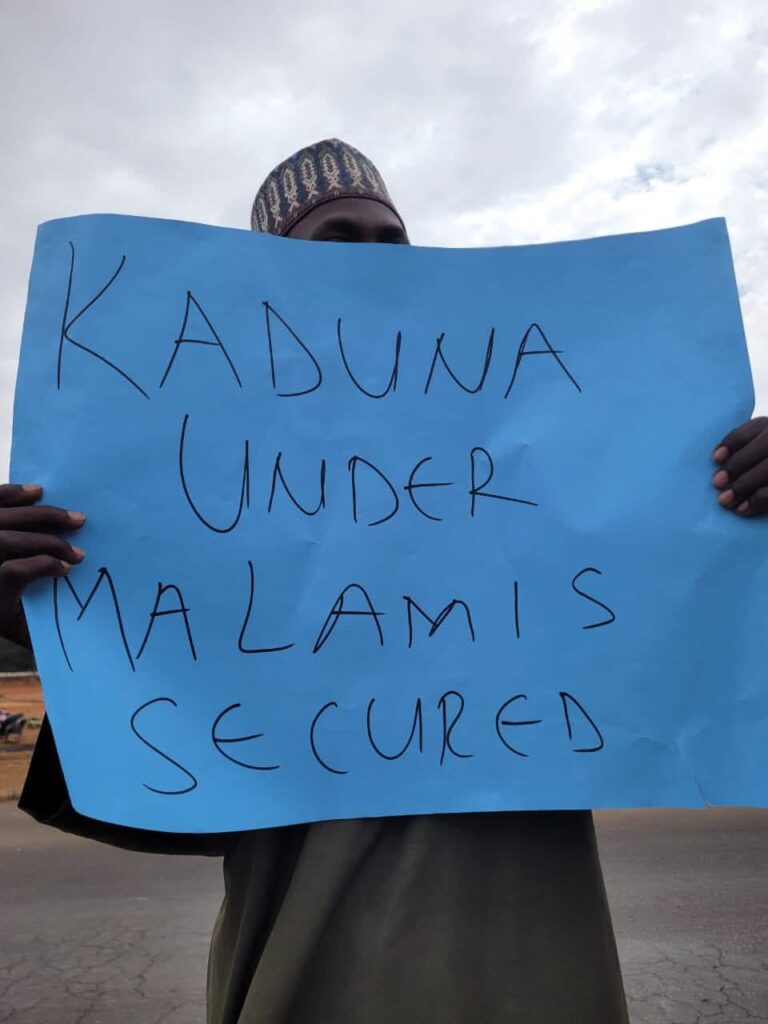 KADUNA
UNDER
MALAM IS
SECURED